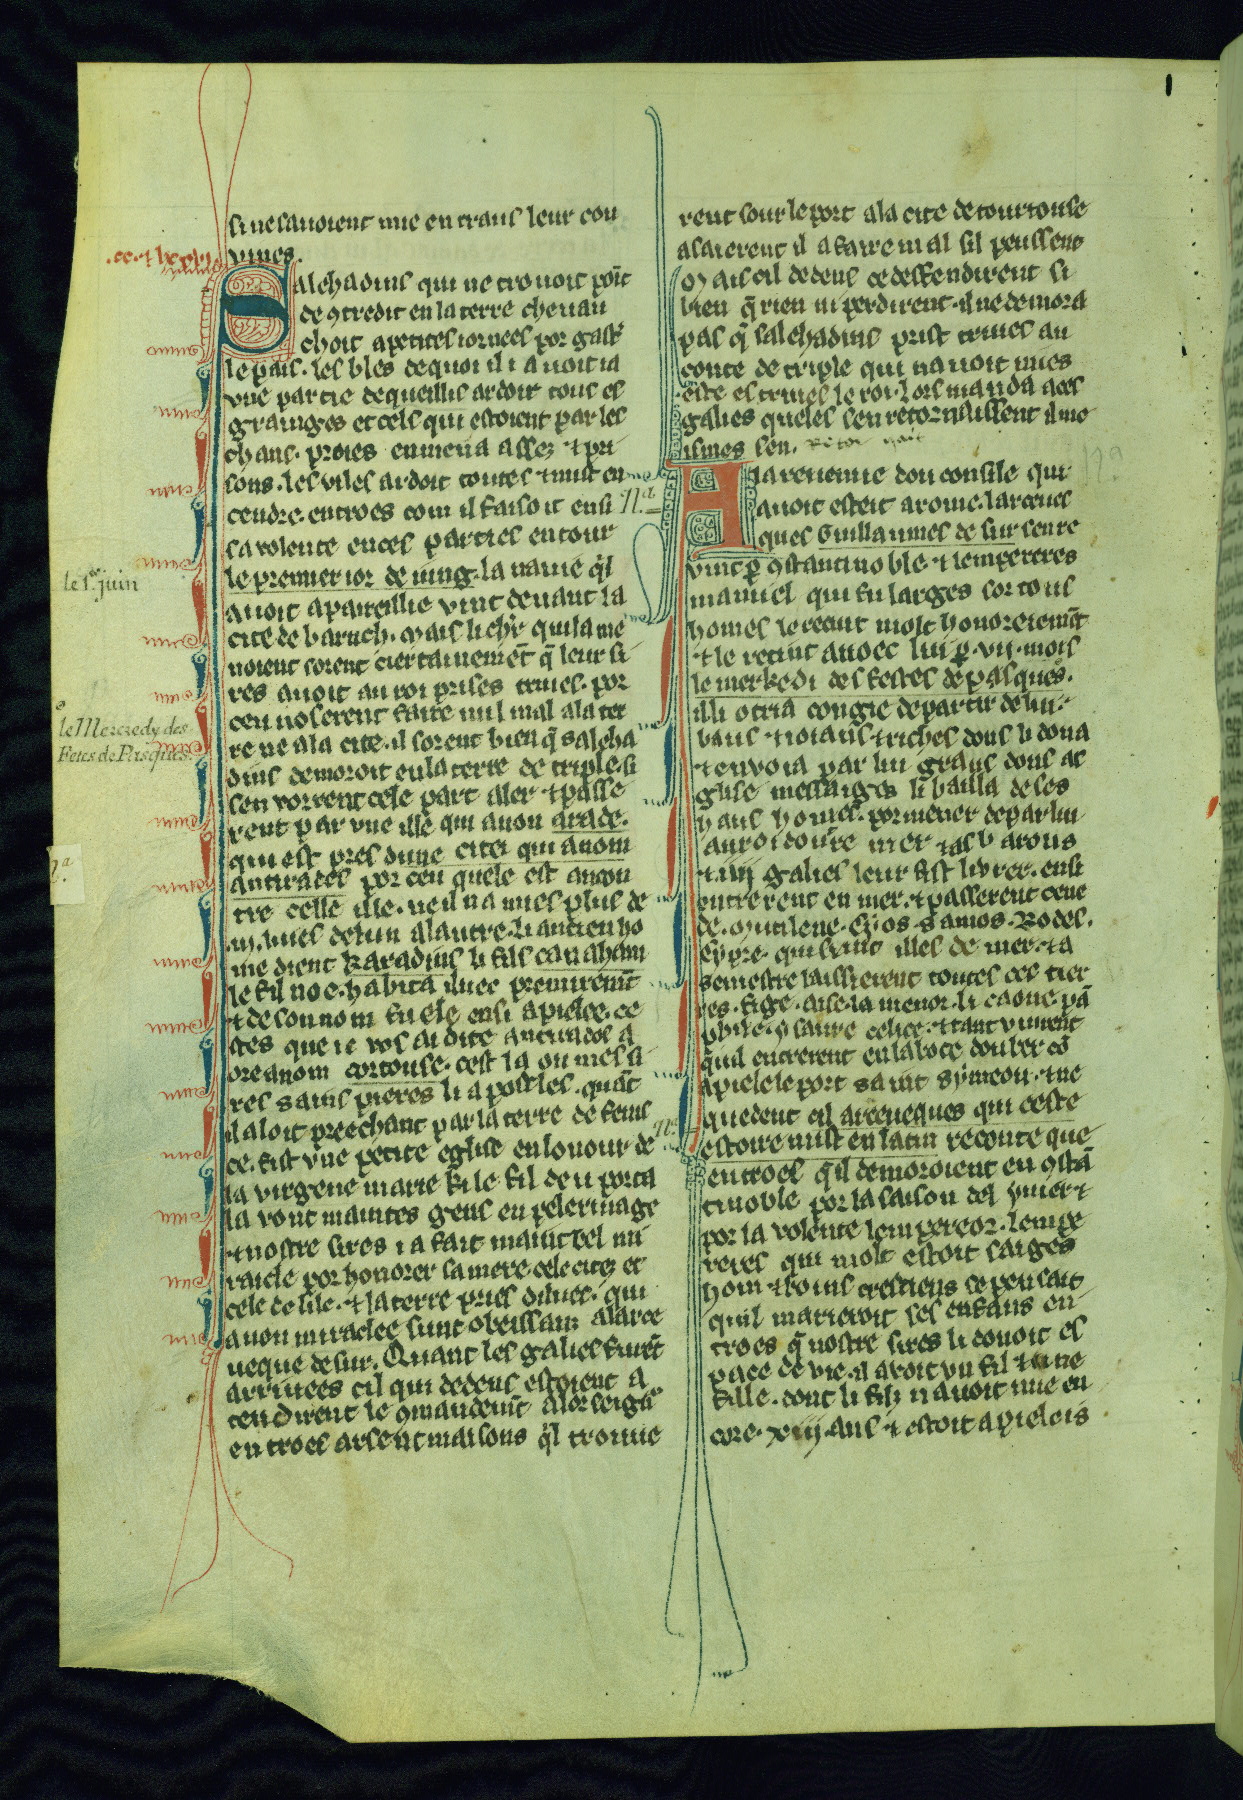 si ne savoient mie en traus leur cou
vines.
Salehadins qui ne trovoit poīt
de 9tredit en la terre chevau
choit a petites iornees por gaster
le païs. les bles de quoi il i avoit ia
une partie de queillis ardoit tous es
grainges et cels qui estoient par les
chans. proies enmena assez ⁊ pri
sons. les viles ardoit toutes ⁊ mist en
cendre. entroes com il faisoit ensi
sa volente en ces parties entour
le premier ior de iung. la navie q̄l
avoit apareillie vint devant la
cite de baruth. mais li chr̄ qui la me
noient sorent certainemēt q̄ leur si
res avoit au roi prises trives. por
ceu noserent faire nul mal a la ter
re ne a la cite. il sorent bien q̄ saleha
dins demoroit en la terre de triple. si
sen vorrent cele part aler ⁊ passe
rent par une ille qui a non arade.
qui est pres dune citei qui a nom
antirades por ceu quele est ancon
tre celle ille. ne il na mies plus de
.iii. liues de lun a lautre. li ancien ho
me dient karadius li fils canaham
le fil noe. habita iluec premiremēt
⁊ de son nom fu ele ensi apielee. ce
stes que ie vos ai dite antirados a
ore a nom tortouse. cest la ou mes si
res sains pieres li apostles. quāt
il aloit preechant par la terre de fenis
ce. fist une petite eglise en lonour de
la virgene marie ki le fil deu porta
la vont maintes gens en pelerinage
⁊ nostre sires i a fait maint bel mi
racle por honorer sa mere cele citez et
cele de sile. ⁊ la terre pries diluec. qui
a non miraclee sunt obeissanz a larce
veque de sur. Quant les galies furēt
arrivees cil qui dedens estoient a
tendirent le 9mandemt̄ a lor seignr̄
entroes arsent maisons q̄l trouve
rent sour le port a la cite de tourtouse
asaierent il a faire mal sil peussent
Mais cil dedens ce deffendirent si
bien q̄ rien ni perdirent. il ne demora
pas q̄ salehadins prist trives au
conte de triple qui navoit mies
este es trives le roi. lors manda a ces
galies queles sen retornaissent il me
ismes sen.
A la revenue dou consile qui
avoit esteit a rome. larceves
ques Guillaumes de sur seure
vint p̄ 9stantinoble. ⁊ lempereres
manuel qui fu larges sor tous
homes le recuit molt honoreiemt̄
⁊ le retint avoec lui p̄ .vii. mois
le merkedi des festes de pasques.
illi otria congie de partir de lui.
biaus ⁊ noians ⁊ riches dons li dona
⁊ envoia par lui grans dons as
glise messaiges li bailla de ses
haus homes. por mener de par lui
au roi doutre mer ⁊ as barons
⁊ .iiii. galies leur fist livrer. ensi
entrerent en mer. ⁊ passerent cene
de. mitilene. chios. samos. Rodes.
cypre. qui sunt illes de mer. ⁊ a
senestre laissierent toutes ces tier
res. frige. aise la menor. li caone. pā
philie. ysaure celice. ⁊ tant vinrent
q̄il entrerent en la boce dou ber cō
apiele le port saint symeon. ⁊ ne
quedent cil arceveques qui ceste
estoire mist en latin reconte que
entroes q̄il demoroient en 9stā
tinoble por la saison del yvier ⁊
por la volente lempereor. lempe
reres qui molt estoit saiges
hom ⁊ boins crestiens ce pensait
quil marieroit ses enfans en
troes q̄ nostre sires li donoit es
pace de vie. il avoit un fil ⁊ une
fille. dont li filz navoit mie en
core .xiiii. ans ⁊ estoit apieleis
le 1er juin
le Mercredy des
Fetes de Pasques.
Na.